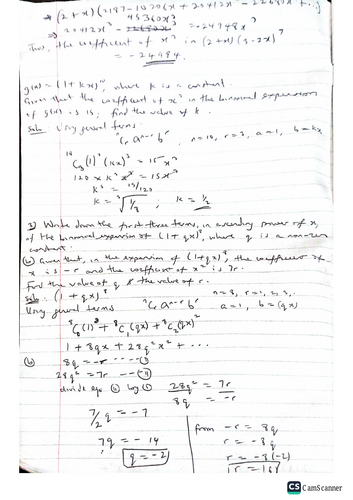 (2+x)(2187 - 10206x + 20412x² - 22680x³ + ...)
45360x³
Thus, the coefficient of x³ in (2+x)(3-2x)⁷
= -24948
g(x) = (1+kx)¹⁰, where k is a constant.
Given that the coefficient of x³ in the binomial expansion
of g(x) is 15, find the value of k.
Soln: Using general terms:
ⁿCᵣ aⁿ⁻ʳ bʳ, n=10, r=3, a=1, b=kx
¹⁰C₃(1)⁷(kx)³ = 15x³
120 × k³x³ = 15x³
k³ = 15/120
k = ∛1/8, k = 1/2
3) Write down the first three terms, in ascending power of x,
of the binomial expansion of (1+qx)⁸, where q is a non-zero
constant.
(b) Given that, in the expansion of (1+qx)⁸, the coefficient of
x is -r and the coefficient of x² is 7r.
Find the value of q & the value of r.
Soln: (1+qx)⁸
Using general terms ⁿCᵣ aⁿ⁻ʳ bʳ n=8,
a=1, b=(qx)
⁸C₀(1)⁸ + ⁸C₁(qx) + ⁸C₂(qx)²
1 + 8qx + 28q²x² + ...
(b) 8q = -r
28q² = 7r
divide eqn by 28q²/8q = 7r/-r
7/2 q = -7
7q = -14
q = -2
from -r = 8q
r = -8q
r = -8(-2)
r = 16
CS CamScanner